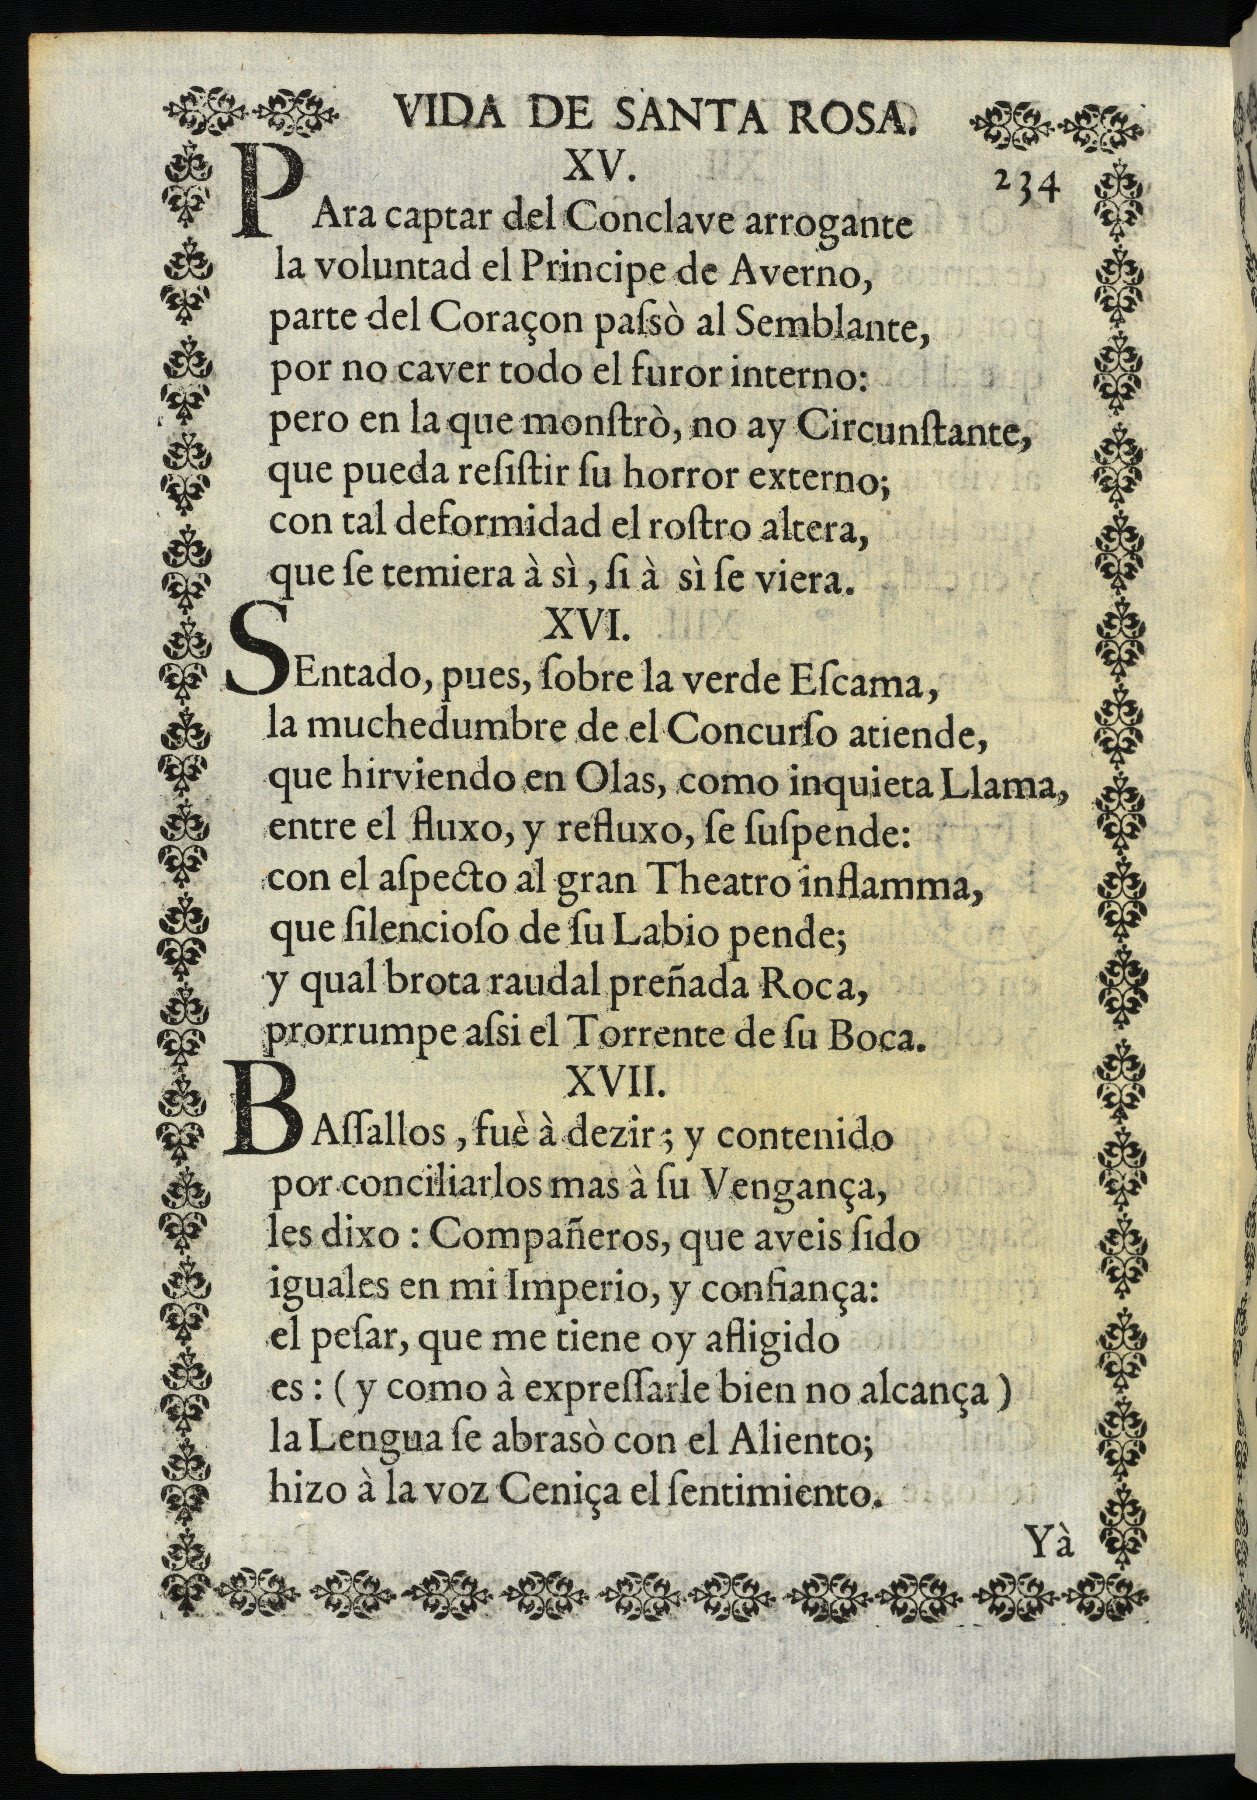 VIDA DE SANTA ROSA.
XV.
234
PAra captar del Conclave arrogante
la voluntad el Principe de Averno,
parte del Coraçon paſsò al Semblante,
por no caver todo el furor interno:
pero en la que monſtrò, no ay Circunſtante,
que pueda reſiſtir ſu horror externo;
con tal deformidad el roſtro altera,
que ſe temiera à sì, ſi à sì ſe viera.
XVI.
SEntado, pues, ſobre la verde Eſcama,
la muchedumbre de el Concurſo atiende,
que hirviendo en Olas, como inquieta Llama,
entre el fluxo, y refluxo, ſe ſuſpende:
con el aſpecto al gran Theatro inflamma,
que ſilencioſo de ſu Labio pende;
y qual brota raudal preñada Roca,
prorrumpe aſsi el Torrente de ſu Boca.
XVII.
BAſſallos, fuè à dezir; y contenido
por conciliarlos mas à ſu Vengança,
les dixo: Compañeros, que aveis ſido
iguales en mi Imperio, y confiança:
el peſar, que me tiene oy afligido
es: (y como à expreſſarle bien no alcança)
la Lengua ſe abrasò con el Aliento;
hizo à la voz Ceniça el ſentimiento.
Yà